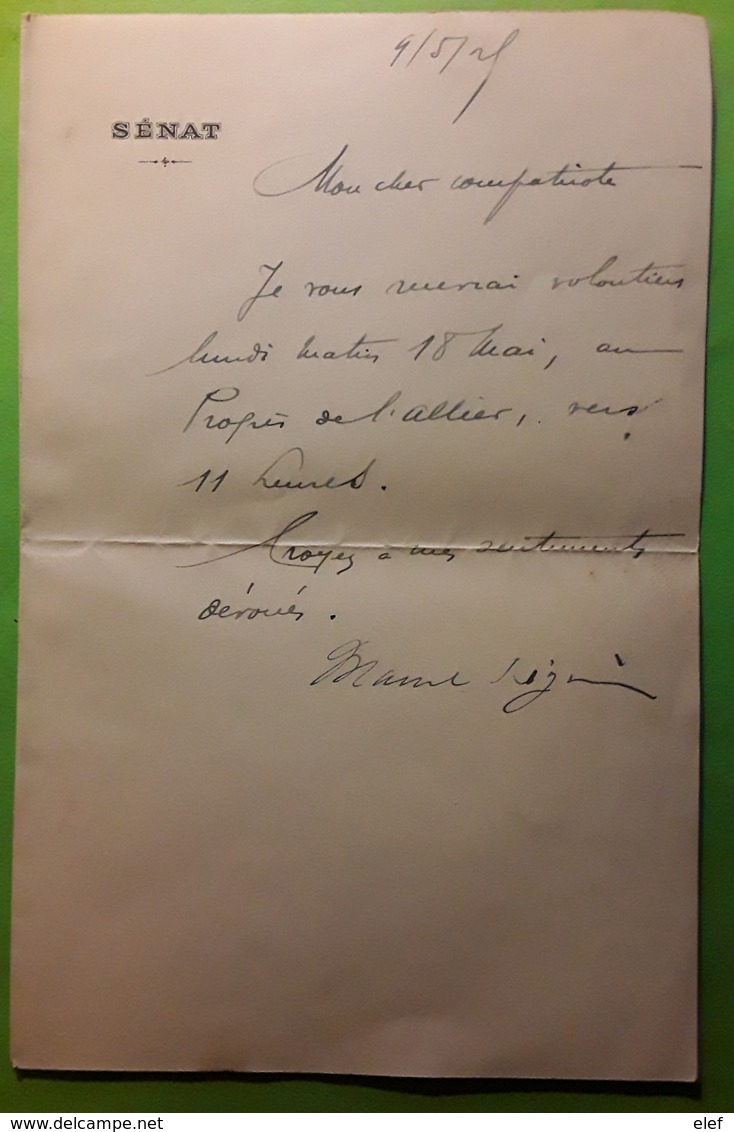 9/5/25
SÉNAT
Mon cher compatriote
Je vous verrai volontiers
lundi matin 18 Mai, au
Progrès de l'Allier, vers
11 heures.
Croyez à mes sentiments
dévoués.
Marcel Régnier
delcampe.net
elef